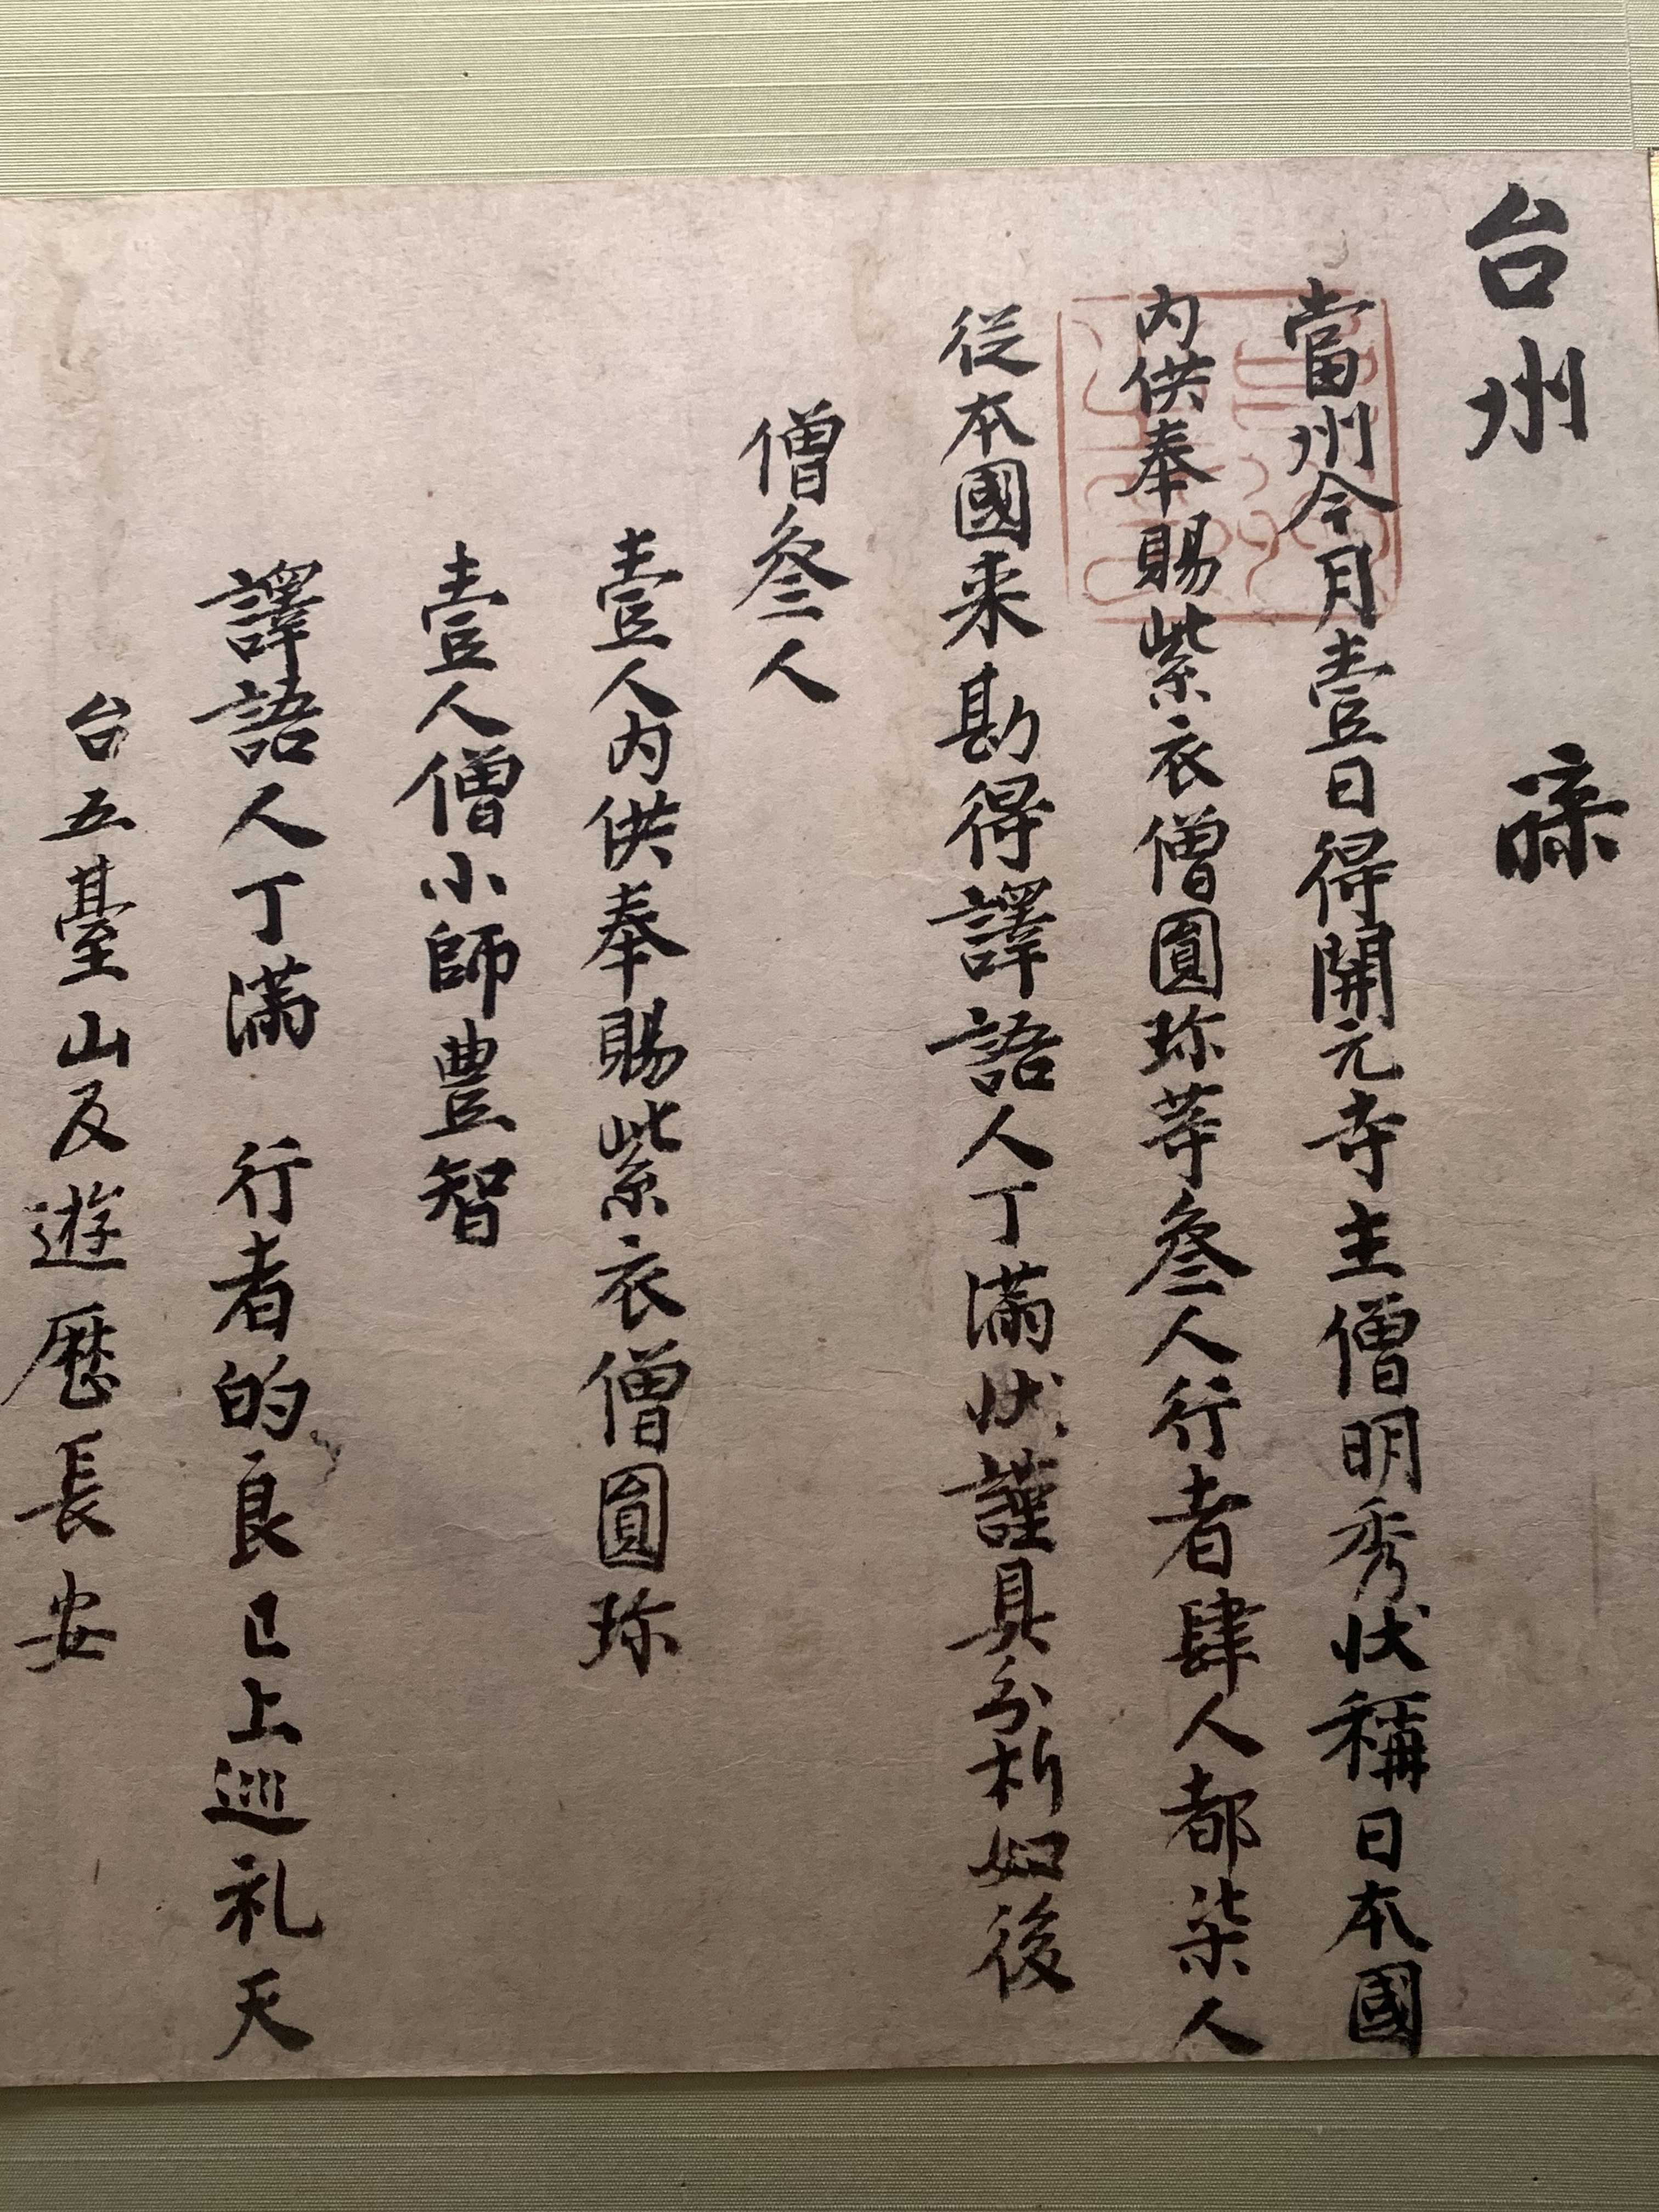 台州 牒
當州今月壹日得開元寺主僧明秀状稱日本國
内供奉賜紫衣僧圓珎等叄人行者肆人都柒人
從本國来勘得譯語人丁滿状謹具分析如後
僧叄人
壹人内供奉賜紫衣僧圓珎
壹人僧小師豊智
譯語人丁滿 行者的良已上巡礼天
台五臺山及遊歷長安